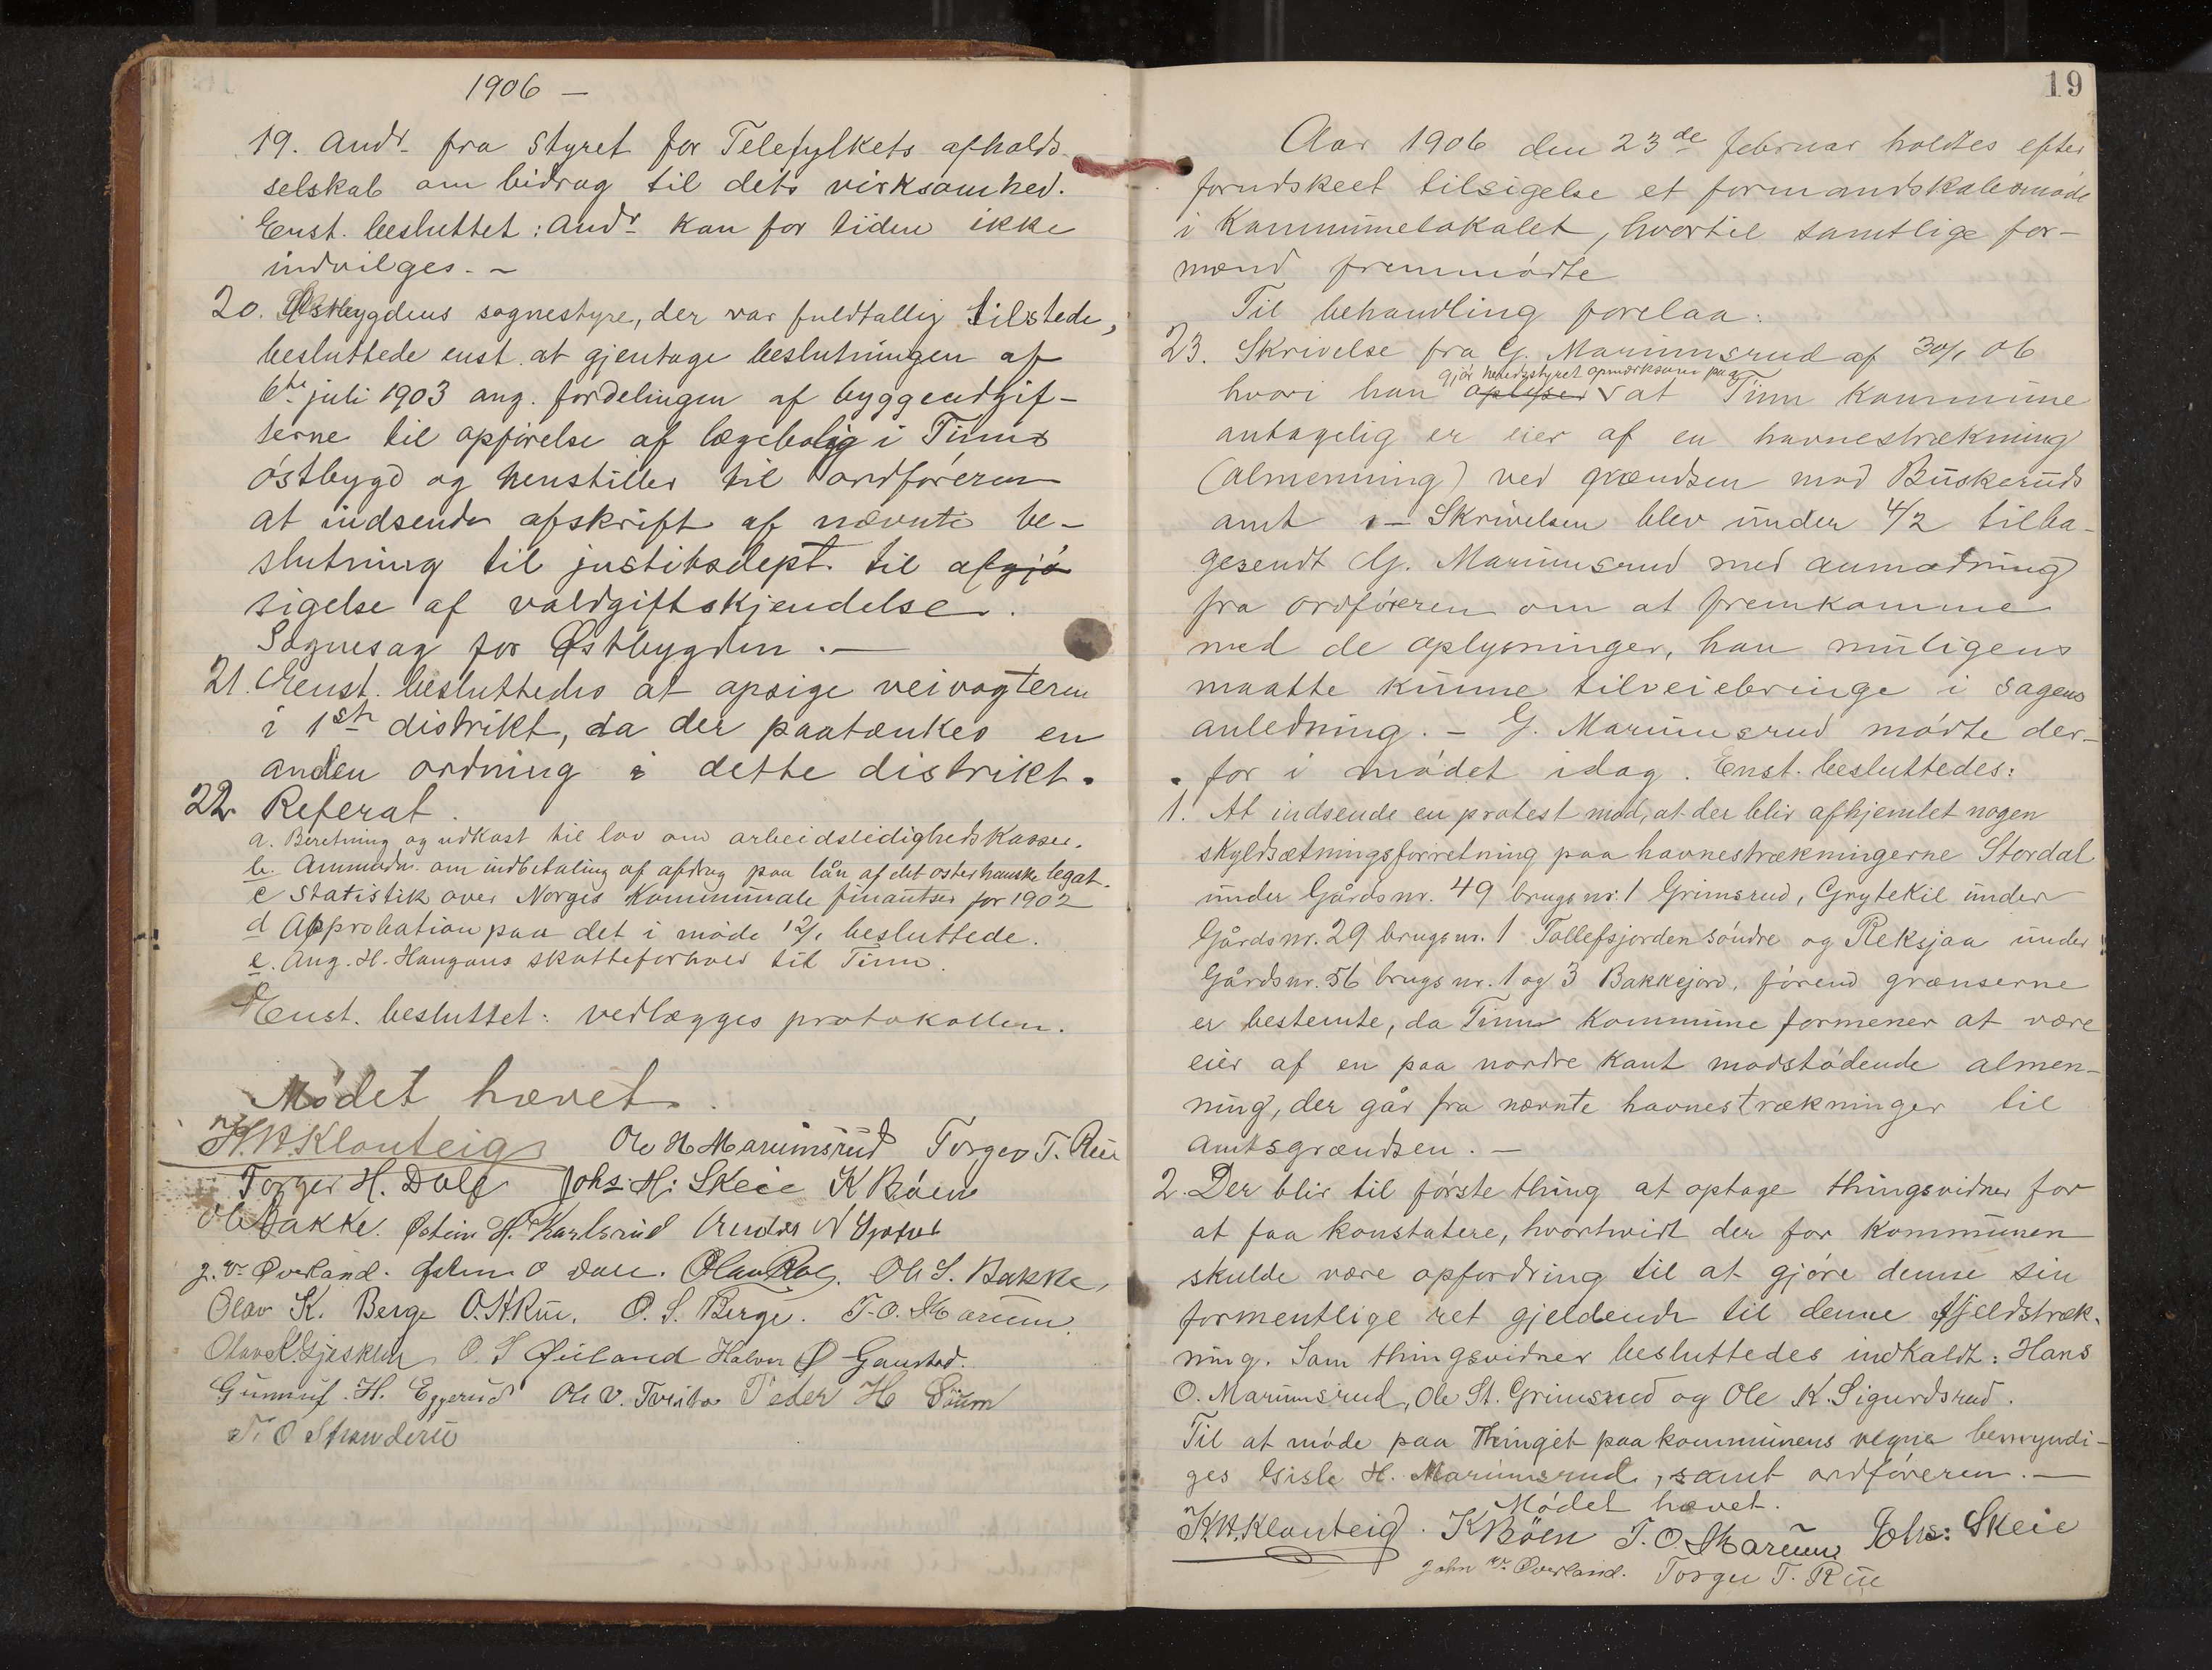 1906 —
19. Andr. fra styret for Telefylkets afholds-
selskab om bidrag til dets virksomhed.
Enst. besluttet: Andr. kan for tiden ikke
indvilges. -
20. Østbygdens sognestyre, der var fuldtallig tilstede,
besluttede enst. at gjentage beslutningen af
6te juli 1903 ang. fordelingen af byggeudgif-
terne til opførelse af lægebolig i Tinns
østbygd og henstiller til ordføreren
at indsende afskrift af nævnte be-
slutning til justitsdept. til afgjø
sigelse af voldgiftskjendelse.
Sognesag for Østbygden. —
21. Enst. besluttedes at opsige veivogteren
i 1ste distrikt, da der paatænkes en
anden ordning i dette distrikt.
22. Referat.
a. Beretning og udkast til lov om arbeidsledighedskasser.
b. Anmodn. om indbetaling af afdrag paa lån af det osterhauske legat.
c Statistik over Norges kommunale finantser for 1902
d Approbation paa det i møde 12/1 besluttede.
e. Ang. H. Haugans skatteforhold til Tinn.
Enst. besluttet: vedlægges protokollen.
Mødet hævet.
K.A.Klonteig Ole H Marumsrud Torger T. Rue
Torger H. Dale Johs: H: Skeie K Bøen
Ole Bakke. Østein H. Karlsrud
J. Øverland. Østen O Dale. Ole S. Bakke,
Olav K. Berge O.K.Rue. O. S. Berge. T. O. Marum.
O. S Øiland Halvor Ø Gaustad.
H. Eggerud Ole V. Tveito Peder H
T. O Stranderu
19
Aar 1906 den 23de februar holdtes efter
forudskeet tilsigelse et formandskabsmøde
i Kommunelokalet, hvortil samtlige for-
mænd fremmødte
Til behandling forelaa:
23. Skrivelse fra G. Marumsrud af 30/1 06
gjør herredsstyret opmærksom paa
hvori han oplyser at Tinn kommune
antagelig er eier af en havnestrækning
(almenning) ved grændsen mod Buskeruds
amt. — Skrivelsen blev under 4/2 tilba-
gesendt G. Marumsrud med anmodning
fra ordføreren om at fremkomme
med de oplysninger, han muligens
maatte kunne tilveiebringe i sagens
anledning. — G. Marumsrud mødte der-
for i mødet idag. Enst. besluttedes:
1. At indsende en protest mod, at der blir afhjemlet nogen
skyldsætningsforretning paa havnestrækningerne Stordal
under Gårdsnr. 49 brugsnr. 1 Grimsrud, Grytekil under
Gårdsnr. 29 brugsnr. 1 Tollefsjorden søndre og Reksjaa under
Gårdsnr. 56 brugsnr. 1 og 3 Bakkejord, førend grænserne
er bestemte, da Tinn kommune formener at være
eier af en paa nordre kant modstødende almen-
ning, der går fra nævnte havnestrækninger til
amtsgrændsen. —
2. Der blir til første thing at optage thingsvidner for
at faa konstatere, hvortvidt der for kommunen
skulde være opfordring til at gjøre denne sin
formentlige ret gjeldende til denne fjeldstræk-
ning. Som thingsvidner besluttedes indkaldt: Hans
O. Marumsrud, Ole St. Grimsrud og Ole K. Sigurdsrud.
Til at møde paa Thinget paa kommunens vegne bemyndi-
ges Gisle H. Marumsrud, samt ordføreren. —
Mødet hævet.
K.A.Klonteig. K Bøen T. O. Marum Johs: Skeie
John Øverland. Torger T. Rue